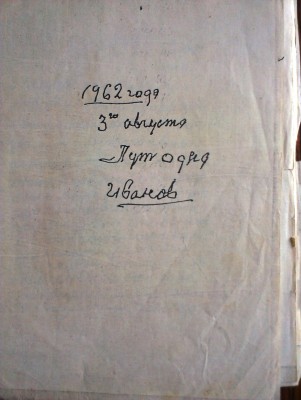 1962 года
3го августа
Пут одня
Иванов